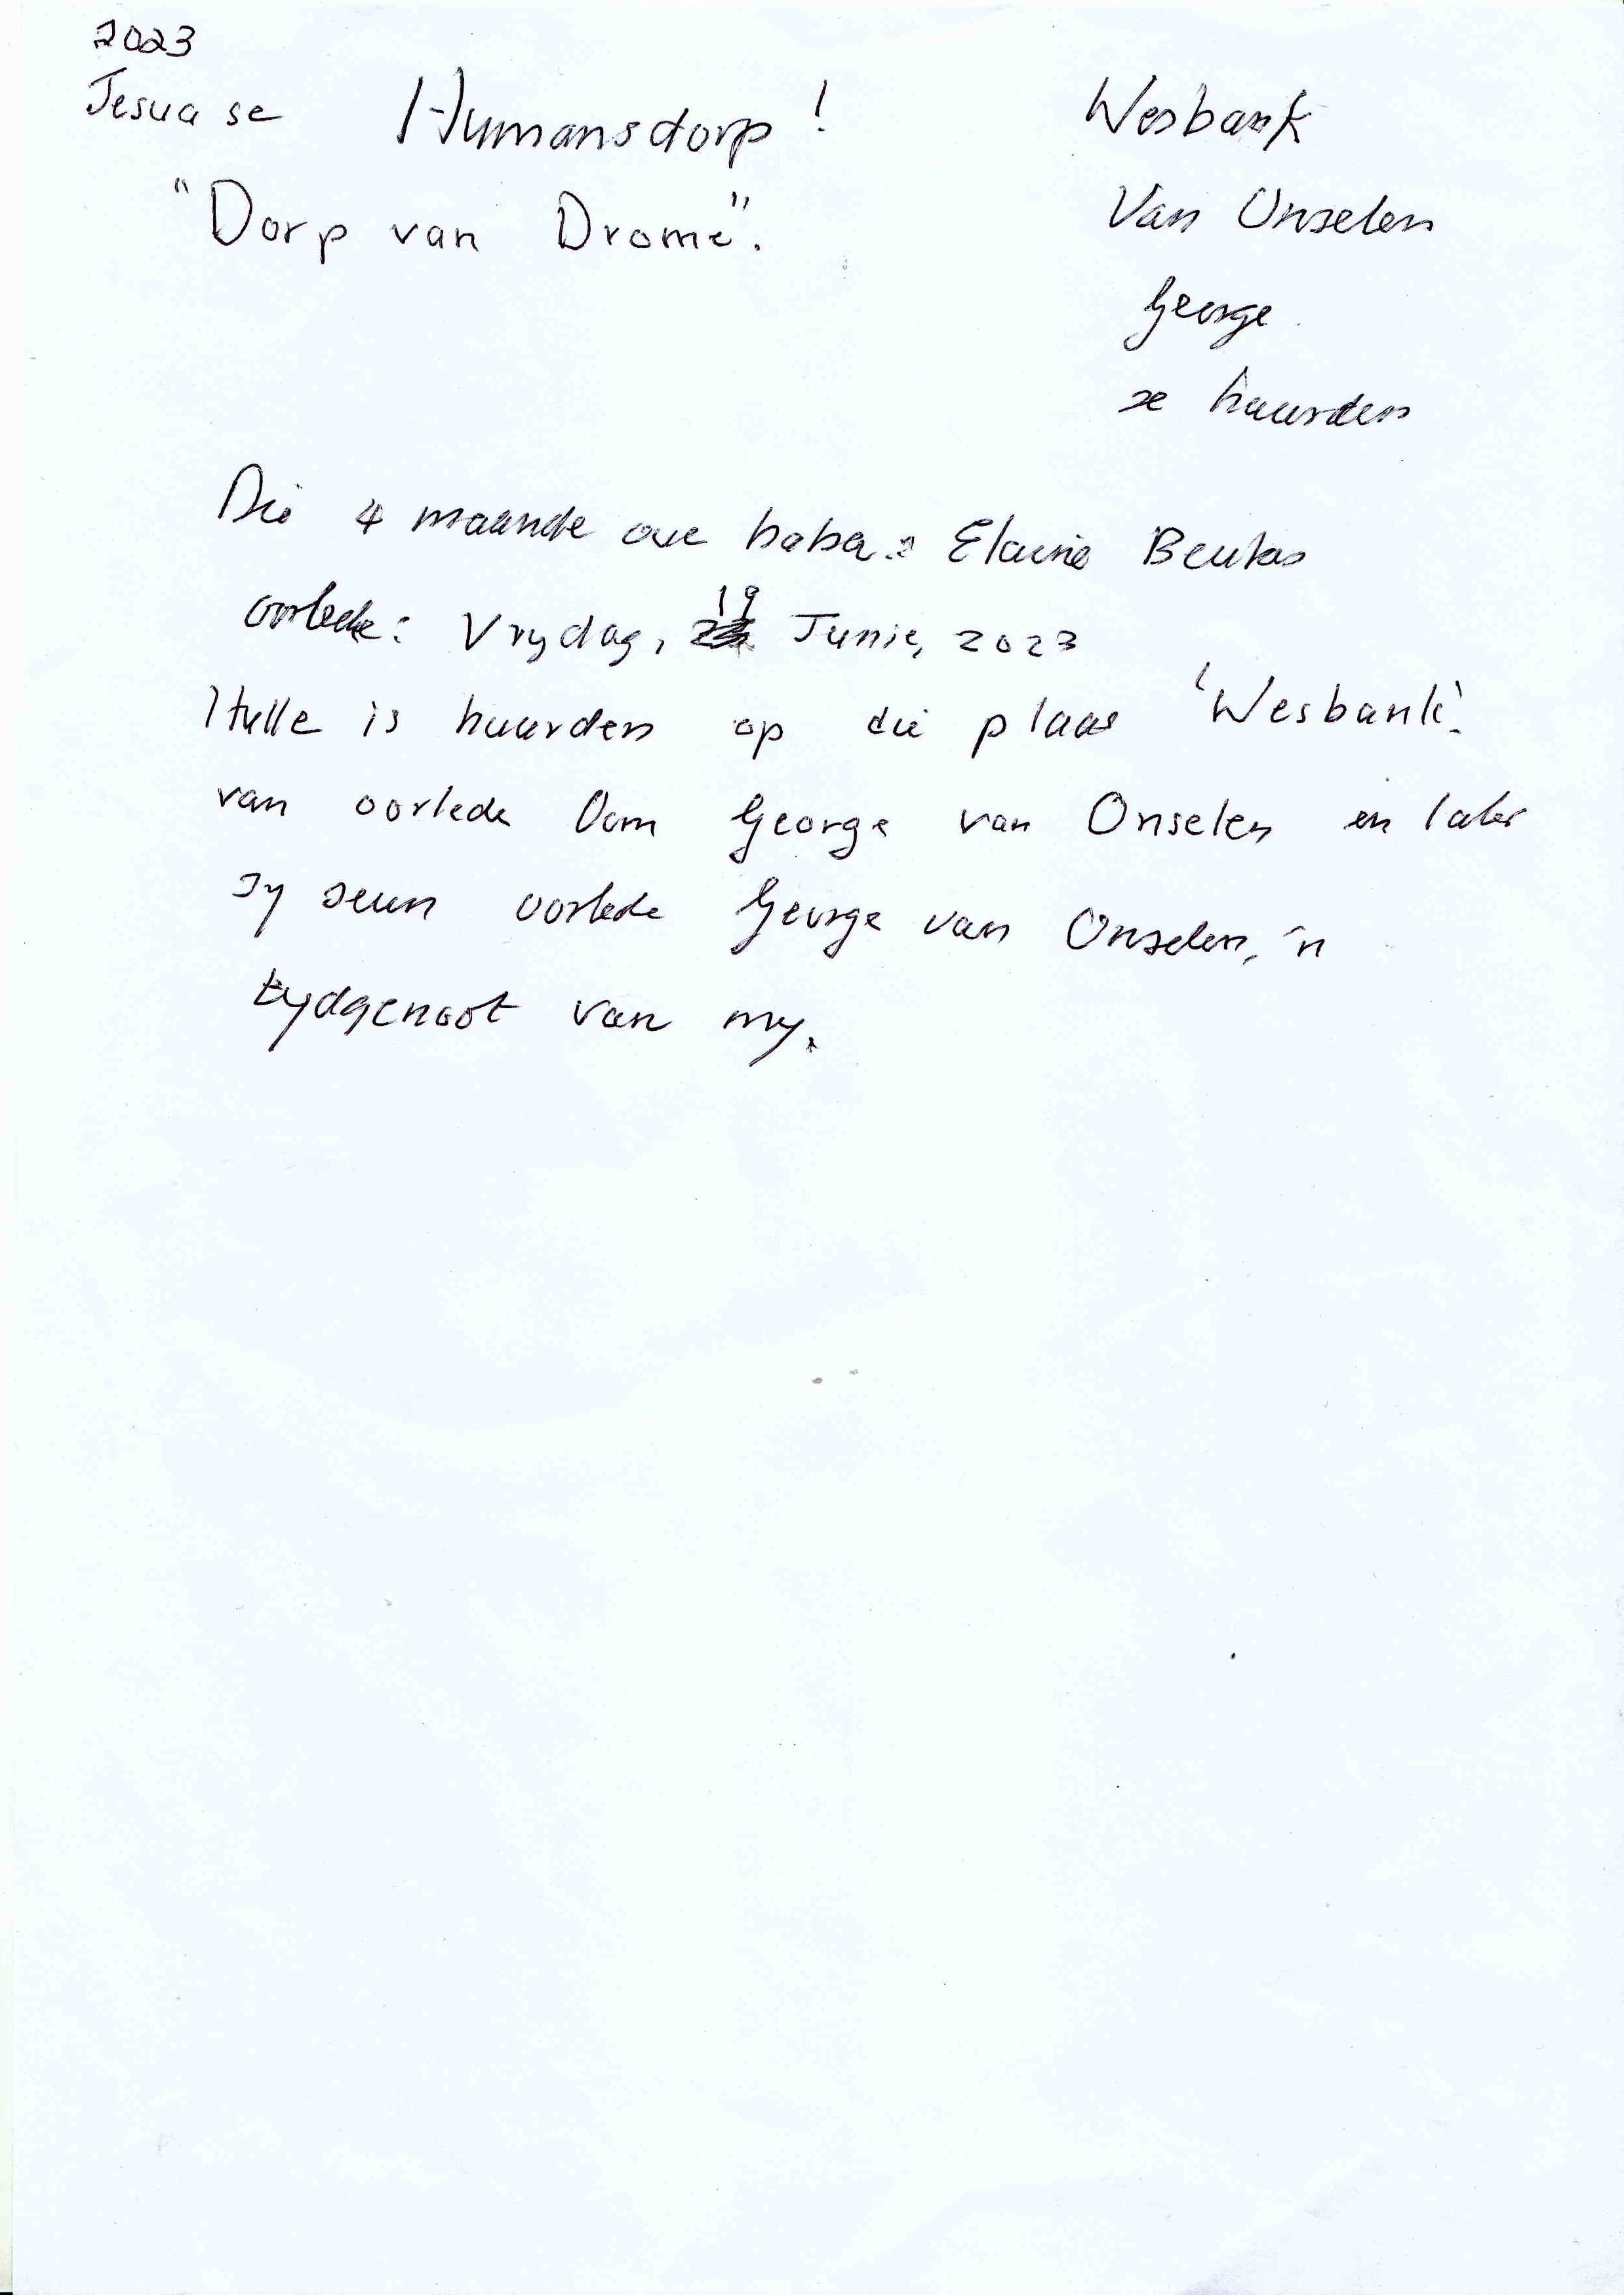 2023
Jesua se Humansdorp!
"Dorp van Drome".
Wesbank
Van Onselen
George
se huurders
Die 4 maande oue baba: Elaine Beukes
oorlede: Vrydag, 19 Junie, 2023
Hulle is huurders op die plaas 'Wesbank'
van oorlede Oom George van Onselen en later
sy seun oorlede George van Onselen, 'n
tydgenoot van my.